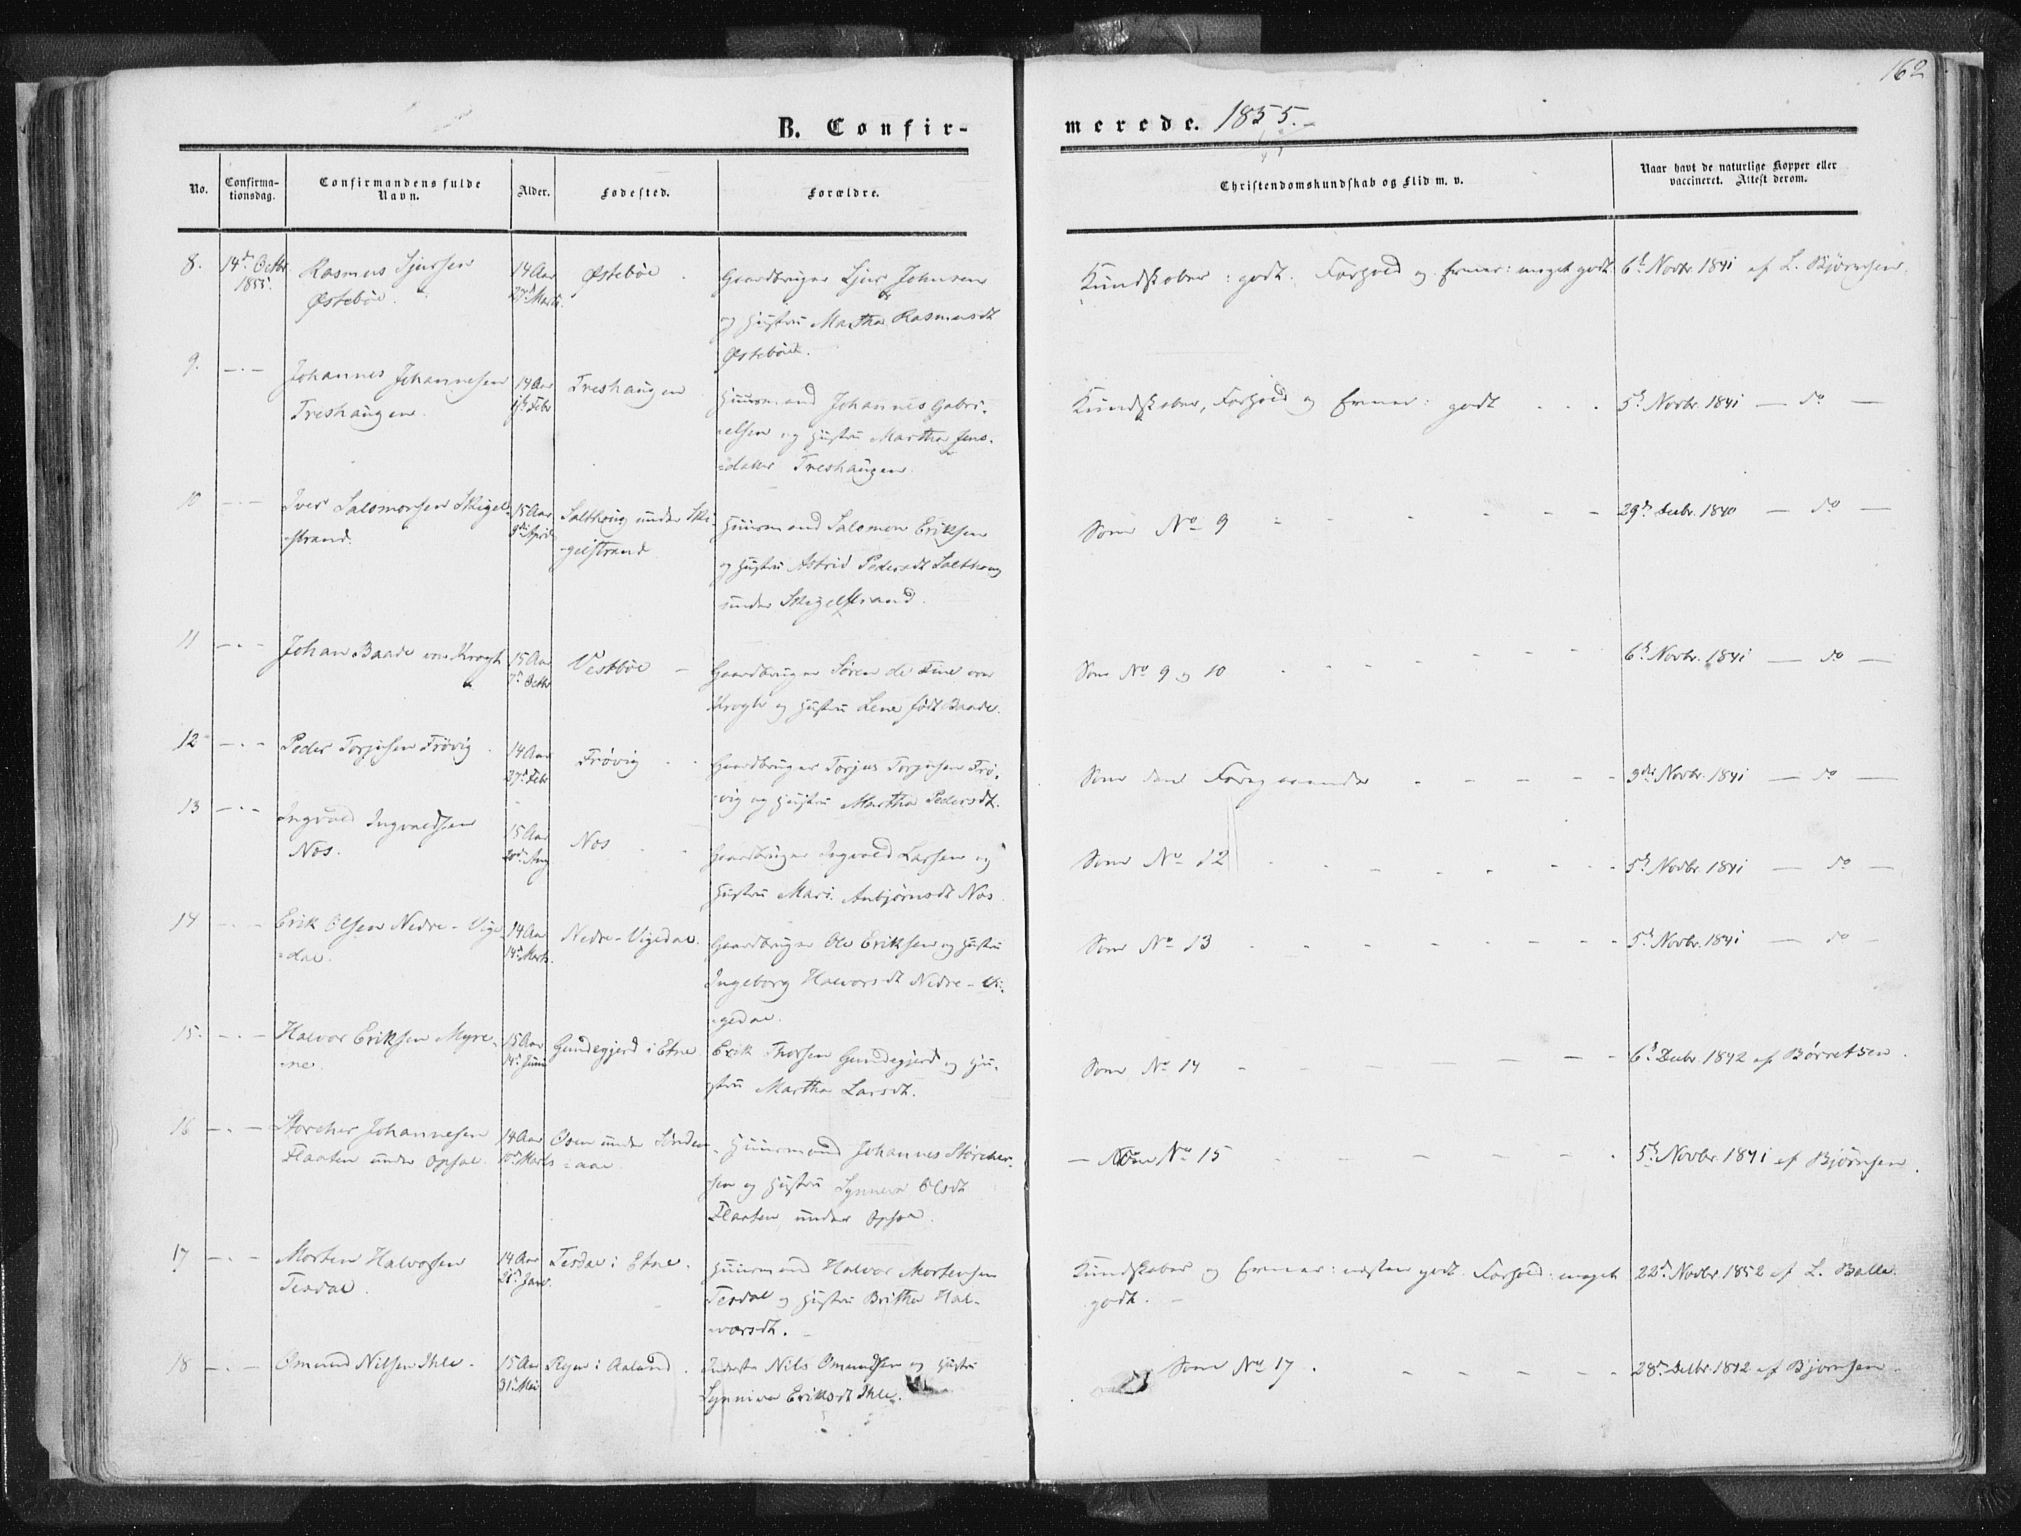 162
B. Confir-
merede. 1855.
No.
Confirma-
tionsdag.
Confirmandens fulde
Navn.
Alder.
Fødested.
Forældre.
Christendomskundskab og Flid m. v.
Naar havt de naturlige Kopper eller
vaccineret. Attest derom.
8. 14de Octbr 1855. Rasmus Sjursen
Østebøe.
14 Aar
27de Marts
Østebøe
Gaardbruger Sjur Johnsen
og Hustru Martha Rasmusdt
Østebøe.
Kundskaber: godt. Forhold og Evner: meget godt.
6te Novbr 1841 af L. Bjørnsen.
9. — · — Johannes Johannesen
Treshaugen.
14 Aar
Febr
Treshaugen
Huusmand Johannes Gabri-
elsen og Hustru Martha Jens-
datter Treshaugen.
Kundskaber, Forhold og Evner: godt
5te Novbr. 1841 — do —
10 — · — Iver Salomonsen Skigel-
strand.
15 Aar
9de April
Saltkoug under Ski-
gelstrand
Huusmand Salomon Eriksen
og Hustru Astrid Pedersdt Saltkoug
under Skigelstrand.
Som No 9
29de Decbr. 1840 — do —
11 — · — Johan Baade von Krogh
15 Aar
7de Octbr
Vestbøe
Gaardbruger Søren de Fine von
Krogh og Hustru Lene født Baade.
Som No 9 og 10
6te Novbr. 1841 — do —
12 — · — Peder Torjusen Frøvig
14 Aar
27de Febr
Frøvig
Gaardbruger Torjus Torjusen Frø-
vig og Hustru Martha Pedersdt.
Som den Foregaaende
9de Novbr. 1841 — do —
13 — · — Ingvald Ingvaldsen
Nos.
15 Aar
20de Aug
Nos
Gaardbruger Ingvald Larsen og
Hustru Mari Anbjørnsdt Nos.
Som No 12
5te Novbr. 1841 — do —
14 — · — Erik Olsen Nedre-Vige-
dal.
14 Aar
14de Marts.
Nedre-Vigedal.
Gaardbruger Ole Eriksen og Hustru
Ingeborg Halvorsdt Nedre-Vi-
gedal.
Som No 13
5te Novbr. 1841 — do —
15. — · — Halvor Eriksen Myre-
ne.
15 Aar
14de Juni
Gundegjerd i Etne
Erik Thorsen Gundegjerd og Hu-
stru Martha Larsdt.
Som No 14
6te Decbr 1842 af Børretsen.
16 — · — Storcher Johannesen
Flaaten under Opsal.
14 Aar
10de Marts
Osen under Sønden-
aae.
Huusmand Johannes Størcher-
sen og Hustru Synneva Olsdt
Flaaten under Opsal.
— Som No 15
5te Novbr. 1841 af Bjørnsen.
17 — · — Morten Halvorsen
Tesdal.
14 Aar
21de Janr.
Tesdal i Etne.
Huusmand Halvor Mortensen
Tesdal og Hustru Britha Hal-
vorsdt.
Kundskaber og Evner: næsten godt. Forhold: meget
godt.
22de Novbr 1852 af L. Balle.
18 — · — Omund Nilsen Ihle.
15 Aar
31te Mai
i Aaland.
Inderste Nils Omundsen og Hustru
Synniva Eriksdt Ihle.
Som No 17.
28de Decbr. 1842 af Bjørnsen.